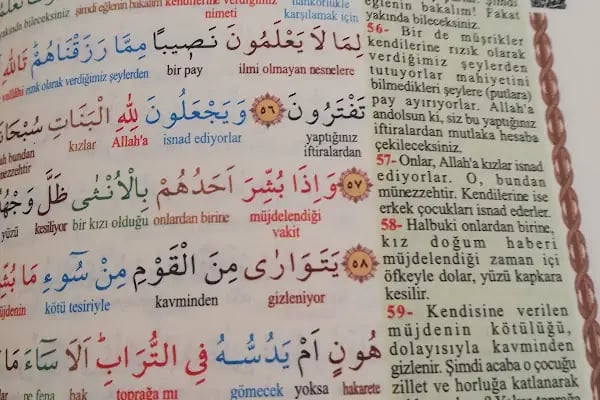 kendilerine verdiğimiz
nimeti
karşılamak için
لِمَا لَا يَعْلَمُونَ نَصِيبًا مِمَّا رَزَقْنَاهُمْ تَاللّٰهِ
ilmi olmayan nesnelere
bir pay
rızık olarak verdiğimiz şeylerden
تَفْتَرُونَ ٥٦ وَيَجْعَلُونَ لِلّٰهِ الْبَنَاتِ
yaptığınız
iftiralardan
isnad ediyorlar
Allah'a
kızlar
٥٧ وَاِذَا بُشِّرَ اَحَدُهُمْ بِالْاُنْثٰى ظَلَّ
müjdelendiği
vakit
onlardan birine
bir kızı olduğu
kesiliyor
yüzü
٥٨ يَتَوَارٰى مِنَ الْقَوْمِ مِنْ سُٓوءِ مَا
gizleniyor
kavminden
kötü tesiriyle
هُونٍ اَمْ يَدُسُّهُ فِي التُّرَابِ اَلَا سَٓاءَ مَا
hakarete
yoksa
gömecek
toprağa mı
bak
ne fena
eğlenin bakalım! Fakat
yakında bileceksiniz.
56- Bir de müşrikler
kendilerine rızık olarak
verdiğimiz şeylerden
tutuyorlar mahiyetini
bilmedikleri şeylere (putlara)
pay ayırıyorlar. Allah'a
andolsun ki, siz bu yaptığınız
iftiralardan mutlaka hesaba
çekileceksiniz.
57- Onlar, Allah'a kızlar isnad
ediyorlar. O, bundan
münezzehtir. Kendilerine ise
erkek çocukları isnad ederler.
58- Halbuki onlardan birine,
kız doğum haberi
müjdelendiği zaman içi
öfkeyle dolar, yüzü kapkara
kesilir.
59- Kendisine verilen
müjdenin kötülüğü,
dolayısıyla kavminden
gizlenir. Şimdi acaba o çocuğu
zillet ve horluğa katlanarak